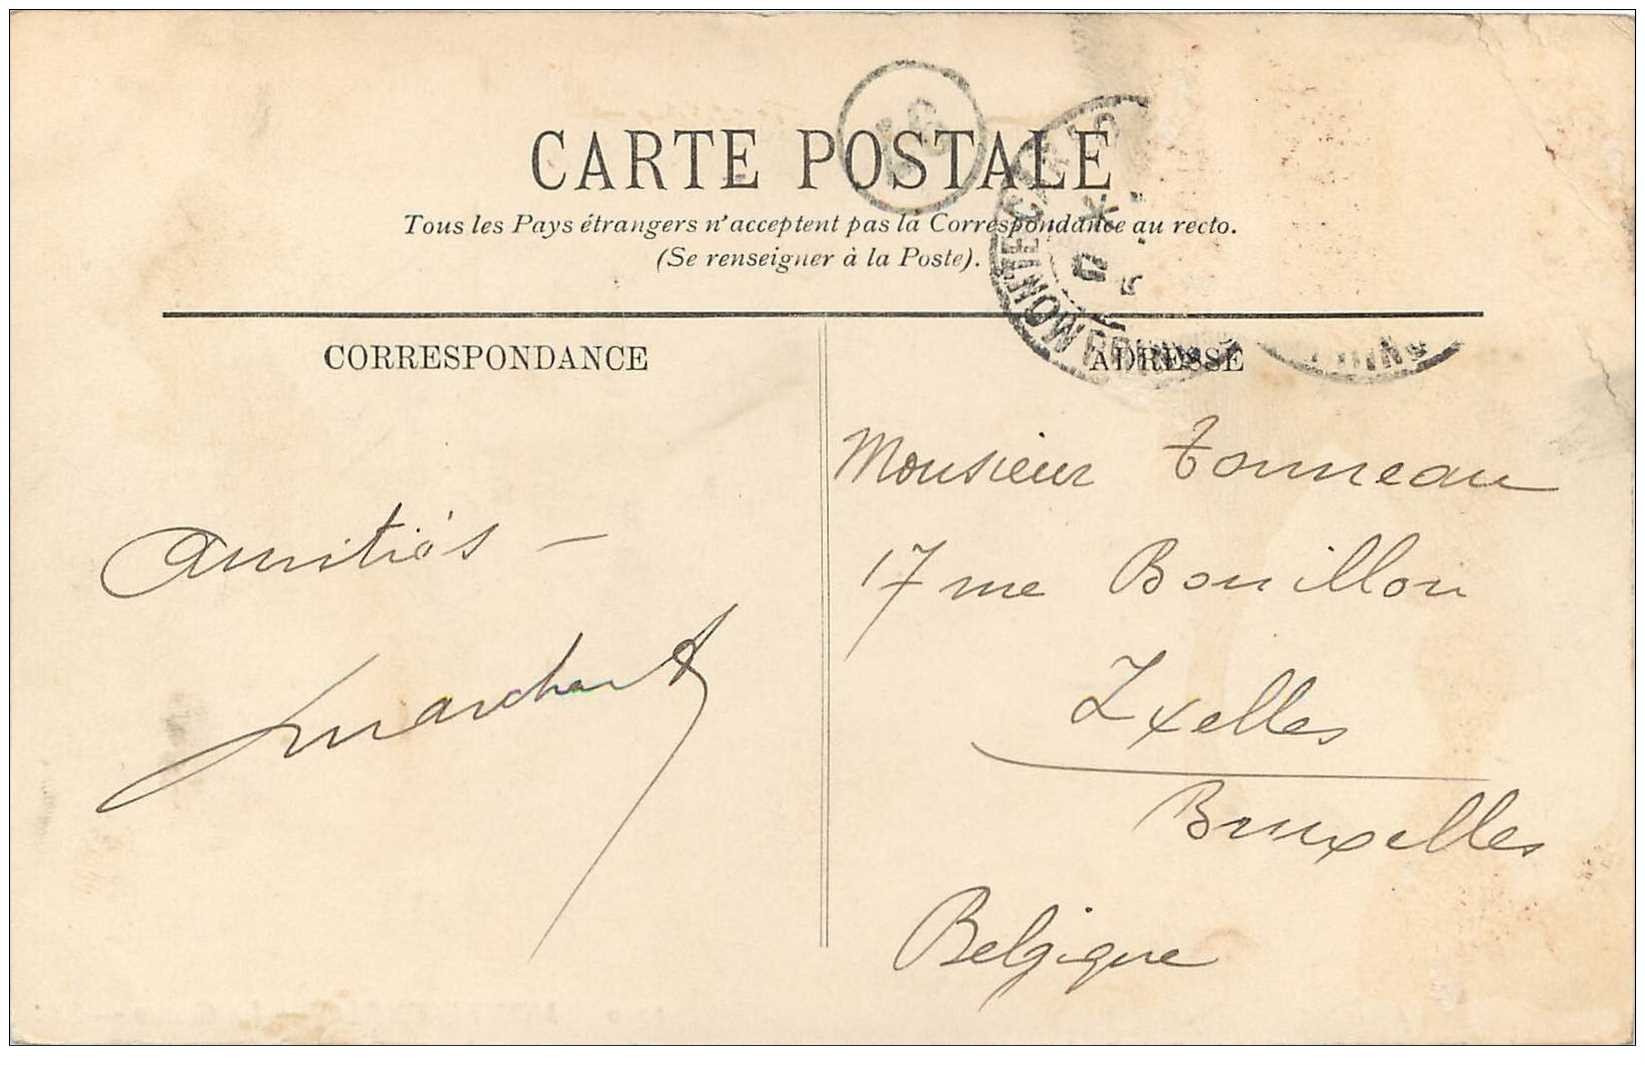 CARTE POSTALE
Tous les Pays étrangers n'acceptent pas la Correspondance au recto.
(Se renseigner à la Poste).
CORRESPONDANCE
ADRESSE
MONTE CARLO
Amitiés –
Marchant
Monsieur Tonneau
17 rue Bouillon
Ixelles
Bruxelles
Belgique